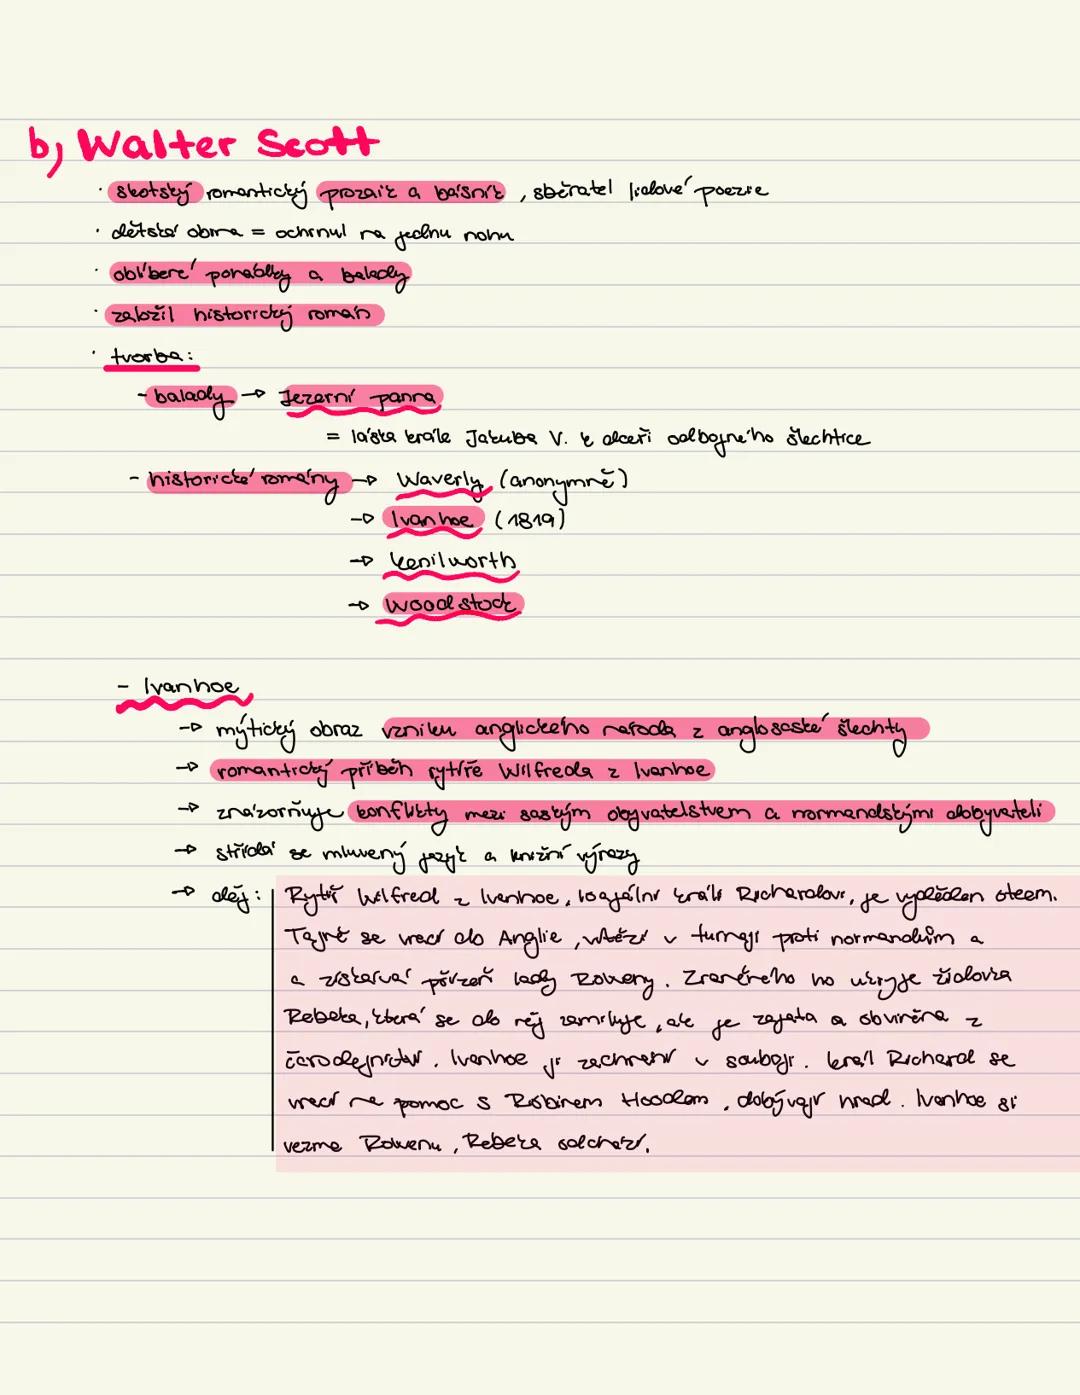 b) Walter Scott
· skotský romantický prozaik a básník, sběratel lidové poezie
· dětská obrna = ochrnul na jednu nohu
· oblíbené pohádky a balady
· založil historický román
· tvorba:
- balady → Jezerní panna
= láska krále Jakuba V. k dceři odbojného šlechtice
- historické romány → Waverly (anonymně)
→ Ivanhoe (1819)
→ Kenilworth
→ Woodstock
- Ivanhoe
→ mýtický obraz vzniku anglického národa z anglosaské šlechty
→ romantický příběh rytíře Wilfreda z Ivanhoe
→ znázorňuje konflikty mezi saským obyvatelstvem a normandskými dobyvateli
→ střídá se mluvený jazyk a knižní výrazy
→ děj: Rytíř Wilfred z Ivanhoe, loajální králi Richardovi, je vyděděn otcem.
Tajně se vrací do Anglie, vítězí v turnaji proti normandům a
a získává přízeň lady Roweny. Zraněného ho ukryje židovka
Rebeka, která se do něj zamiluje, ale je zajata a obviněna z
čarodejnictví. Ivanhoe ji zachrání v souboji. král Richard se
vrací na pomoc s Robinem Hoodem, dobývají hrad. Ivanhoe si
vezme Rowenu, Rebeka odchází.